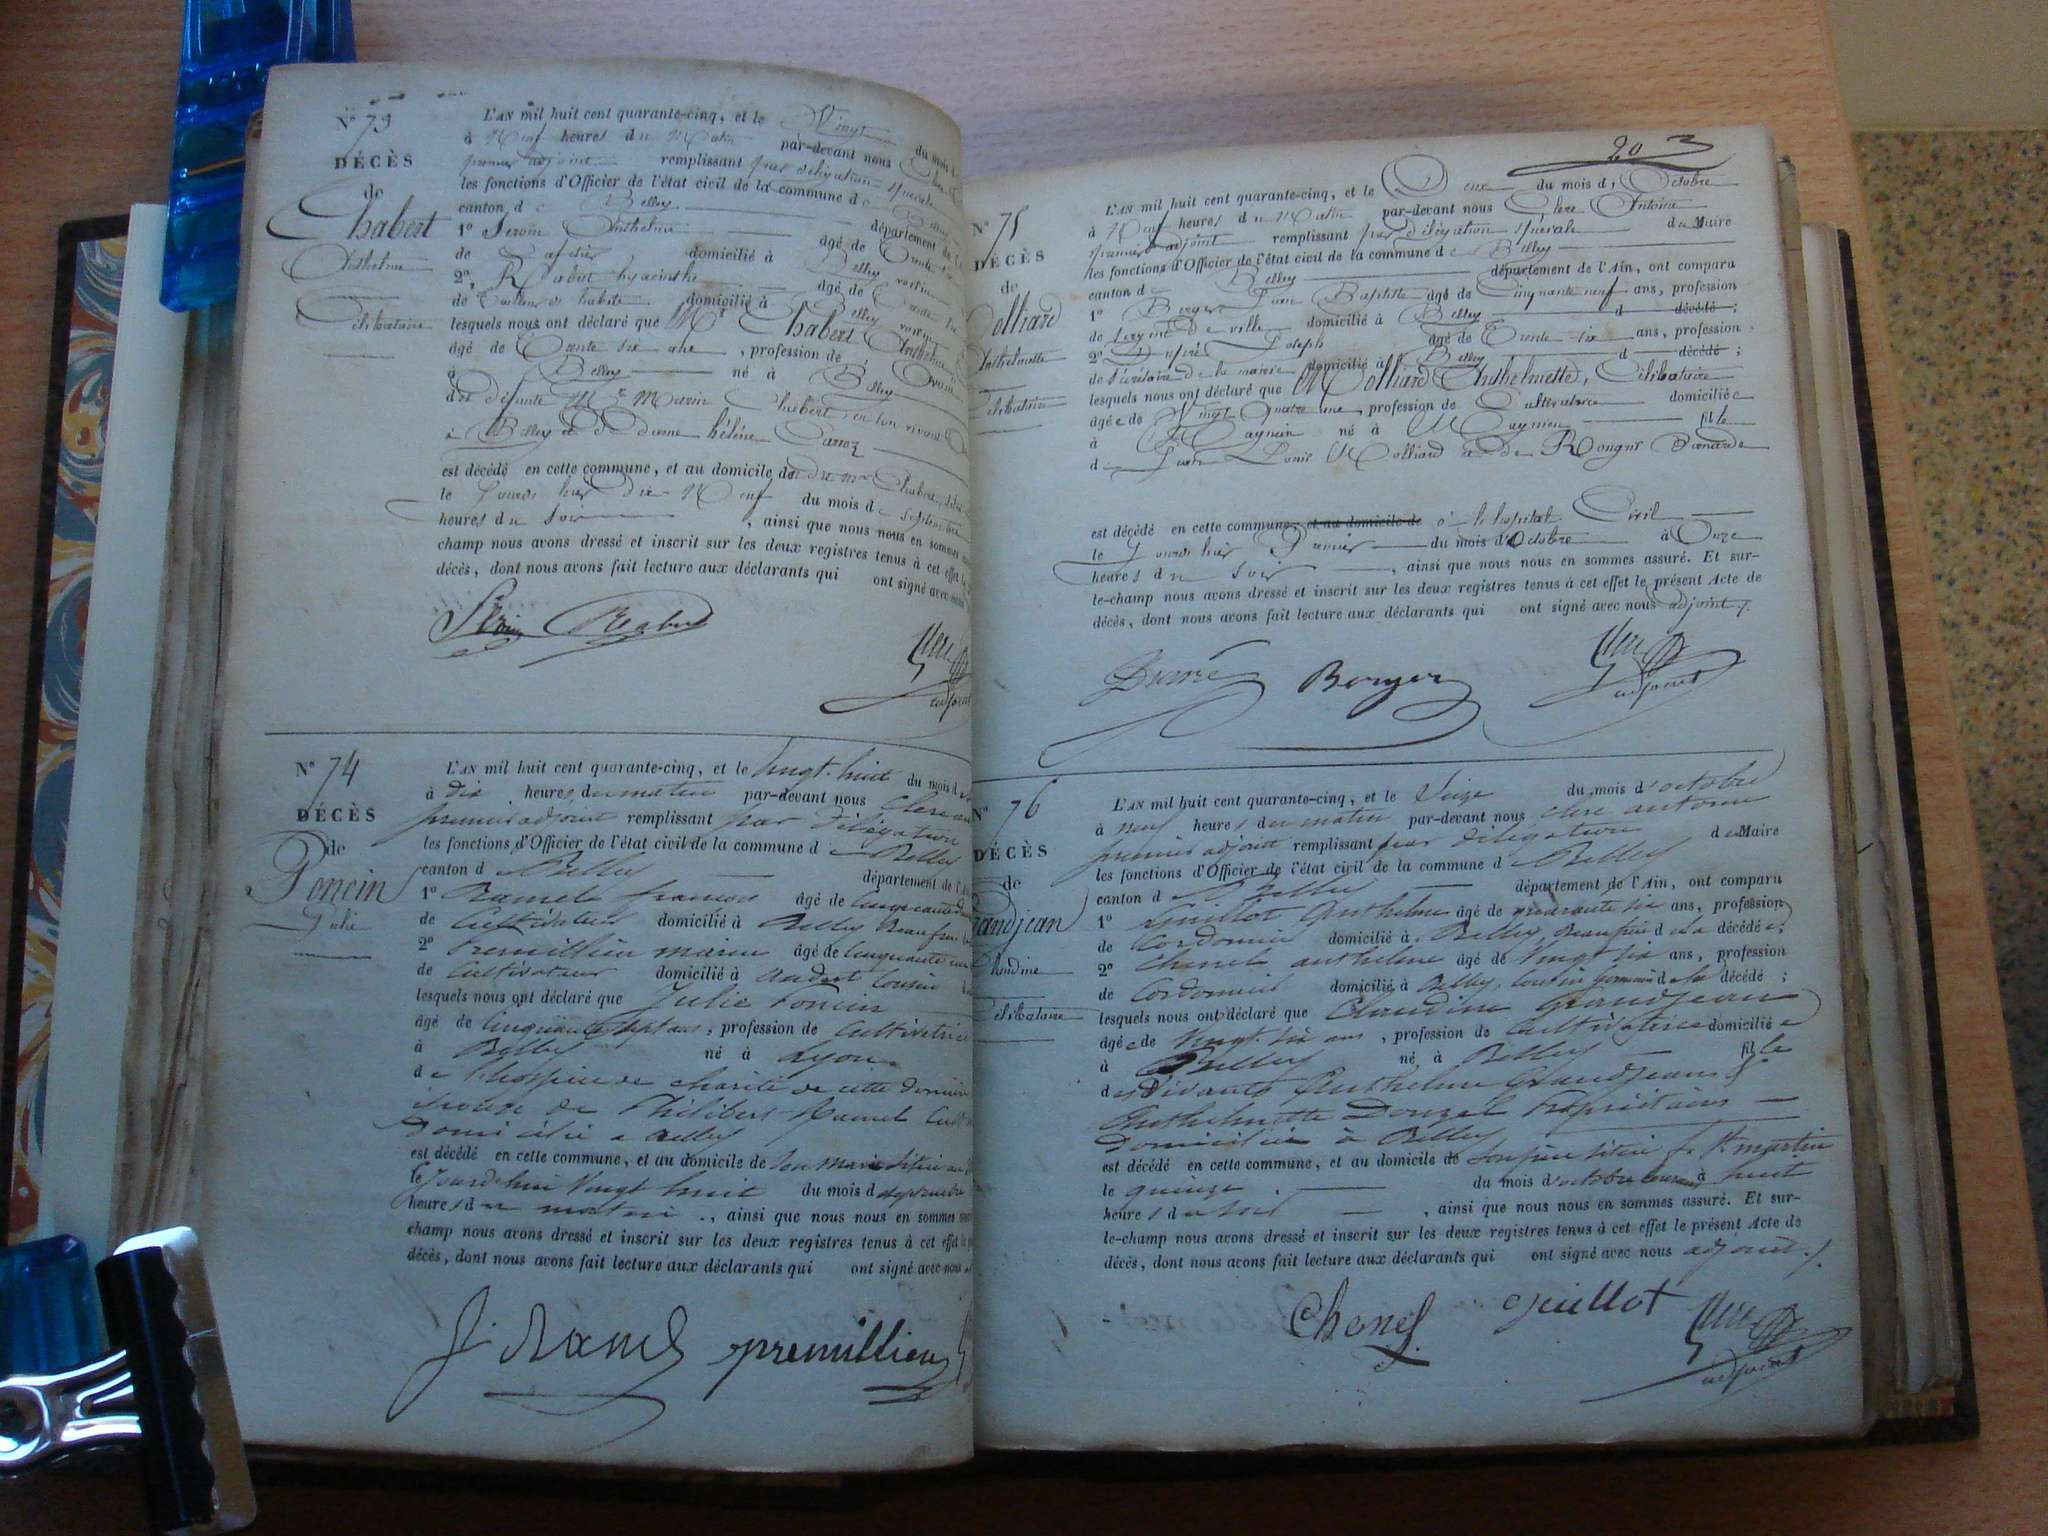 N° 73
DÉCÈS
de
Chabert
Anthelme
Célibataire
L'AN mil huit cent quarante-cinq, et le Vingt du mois
à Neuf heures du Matin par-devant nous Clerc
premier adjoint remplissant par délégation spéciale
les fonctions d'Officier de l'état civil de la commune de
canton de Belley département de
1° Anthelme âgé de Trente
de domicilié à Belley voisin
2° Rabut hyacinthe âgé de Trente
de Tailleur d'habits domicilié à Belley voisin
lesquels nous ont déclaré que Mr Chabert Anthelme
âgé de Trente six ans, profession de
à Belley né à Belley
de défunt Mr Marin Chabert en son vivant
à Belley et de dame hélène
est décédé en cette commune, et au domicile du dit mr Chabert
le Jourd'hier Dix Neuf du mois de septembre
heures du soir, ainsi que nous nous en sommes
champ nous avons dressé et inscrit sur les deux registres tenus à cet effet
décès, dont nous avons fait lecture aux déclarants qui ont signé avec
Rabut
Clerc
adjoint
N° 74
DÉCÈS
de
Poncin
Julie
L'AN mil huit cent quarante-cinq, et le vingt-huit du mois d
à dix heures du matin par-devant nous Clerc
premier adjoint remplissant par délégation
les fonctions d'Officier de l'état civil de la commune de Belley
canton d Belley département de l'Ain
1° Ramel françois âgé de cinquante
de Cultivateur domicilié à Belley Beau frère
2° Premillieu marin âgé de cinquante
de Cultivateur domicilié à andert cousin
lesquels nous ont déclaré que Julie Poncin
âgé de cinquante sept ans, profession de cultivatrice
à Belley né à Lyon
de l'hospice de charité de cette dernière
épouse de Philibert Ramel
domicilié a Belley
est décédé en cette commune, et au domicile de son mari situé au
le Jourd'hui vingt huit du mois d septembre
heures du matin, ainsi que nous nous en sommes
champ nous avons dressé et inscrit sur les deux registres tenus à cet effet
décès, dont nous avons fait lecture aux déclarants qui ont signé avec nous
f. Ramel premillieu
203
N° 75
DÉCÈS
de
Molliard
Anthelmette
Célibataire
L'AN mil huit cent quarante-cinq, et le Deux du mois d'Octobre
à Neuf heures du Matin par-devant nous Clerc Antoine
premier adjoint remplissant par délégation spéciale du Maire
les fonctions d'Officier de l'état civil de la commune de Belley
canton de Belley département de l'Ain, ont comparu
1° Berger Jean Baptiste âgé de Cinquante neuf ans, profession
de sergent de ville domicilié à Belley d décédé;
2° Dupré Joseph âgé de Trente six ans, profession
de secrétaire de la mairie domicilié à Belley d décédé;
lesquels nous ont déclaré que Molliard Anthelmette, Célibataire
âgée de Vingt Quatre ans, profession de Cultivatrice domiciliée
à Magnieu né à Magnieu fille
de Louis Molliard et de
est décédé en cette commune, et au domicile de à l'hôpital Civil
le Jourd'hier Premier du mois d'Octobre à Onze
heures du soir, ainsi que nous nous en sommes assuré. Et sur-
le-champ nous avons dressé et inscrit sur les deux registres tenus à cet effet le présent Acte de
décès, dont nous avons fait lecture aux déclarants qui ont signé avec nous adjoint.
Dupré Berger Clerc
adjoint
N° 76
DÉCÈS
de
Grandjean
Claudine
Célibataire
L'AN mil huit cent quarante-cinq, et le Seize du mois d'octobre
à neuf heures du matin par-devant nous clerc antoine
premier adjoint remplissant par délégation du Maire
les fonctions d'Officier de l'état civil de la commune de Belley
canton d Belley département de l'Ain, ont comparu
1° Guillot Anthelme âgé de quarante six ans, profession
de Cordonnier domicilié à Belley, Beau père de la décédée;
2° Chenel anthelme âgé de vingt six ans, profession
de Cordonnier domicilié à Belley, cousin germain de la décédé;
lesquels nous ont déclaré que Claudine Grandjean
âgée de vingt-six ans, profession de Cultivatrice domiciliée
à Belley né à Belley fille
des vivants Anthelme Grandjean &
Anthelmette Douzel Propriétaires
Domiciliés à Belley
est décédé en cette commune, et au domicile de son père situé f. St martin
le quinze du mois d'octobre courant à huit
heures du soir, ainsi que nous nous en sommes assuré. Et sur-
le-champ nous avons dressé et inscrit sur les deux registres tenus à cet effet le présent Acte de
décès, dont nous avons fait lecture aux déclarants qui ont signé avec nous adjoint.
Chenel Guillot Clerc
adjoint